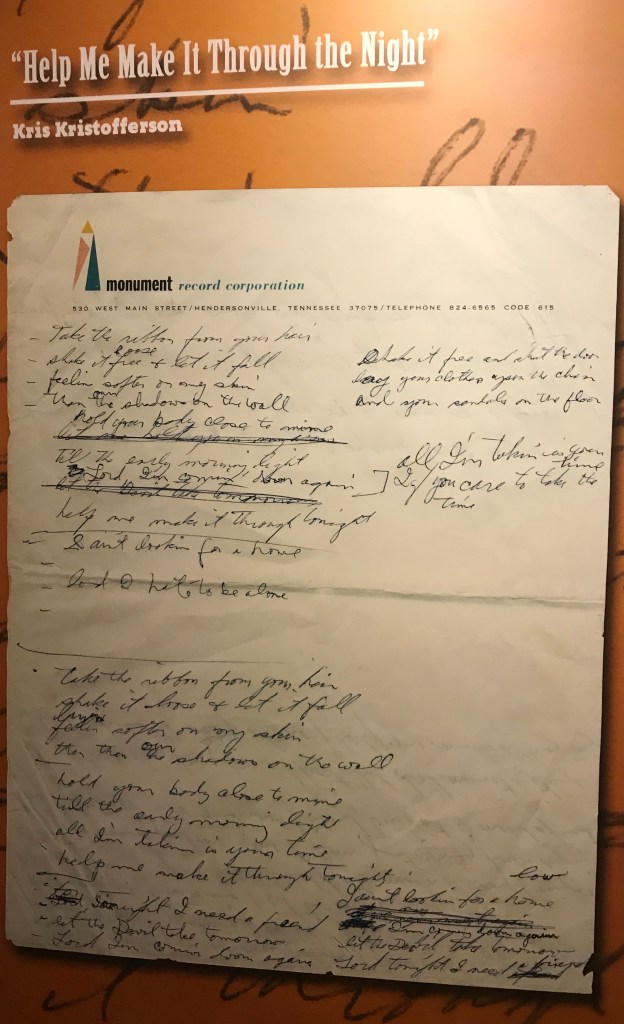 "Help Me Make It Through the Night"
Kris Kristofferson
monument record corporation
530 WEST MAIN STREET/HENDERSONVILLE, TENNESSEE 37075/TELEPHONE 824-6565 CODE 615
- Take the ribbon from your hair
loose
- shake it free & let it fall
- feelin softer on my skin
- than the shadows on the wall
hold your body close to mine
till the early morning light
Lord I'm comin down again
let the Devil take tomorrow
help me make it through tonight
- I ain't lookin for a home
- lord I hate to be alone
-
shake it free and shut the door
lay your clothes upon the chair
and your sandals on the floor
all I'm takin is your time
If you care to take the
time
take the ribbon from your hair
shake it loose & let it fall
layin
feelin softer on my skin
than the shadows on the wall
hold your body close to mine
till the early morning light
all I'm takin is your time
help me make it through tonight
tonight I need a friend
- let the Devil take tomorrow
- Lord I'm comin down again
low
I ain't lookin for a home
I'm comin down again
let the Devil take tomorrow
Lord tonight I need a friend